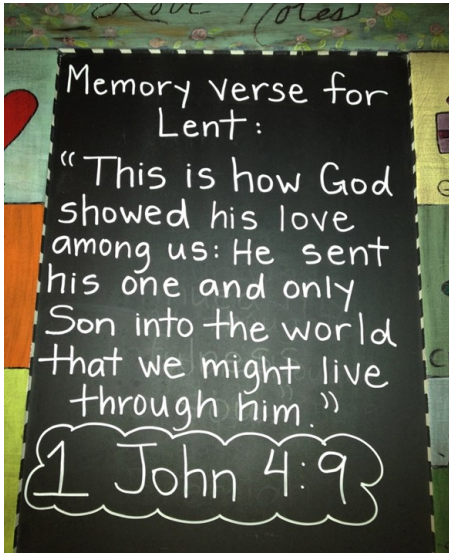 Love Notes
Memory verse for
Lent:
“This is how God
showed his love
among us: He sent
his one and only
Son into the world
that we might live
through him.”
1 John 4:9